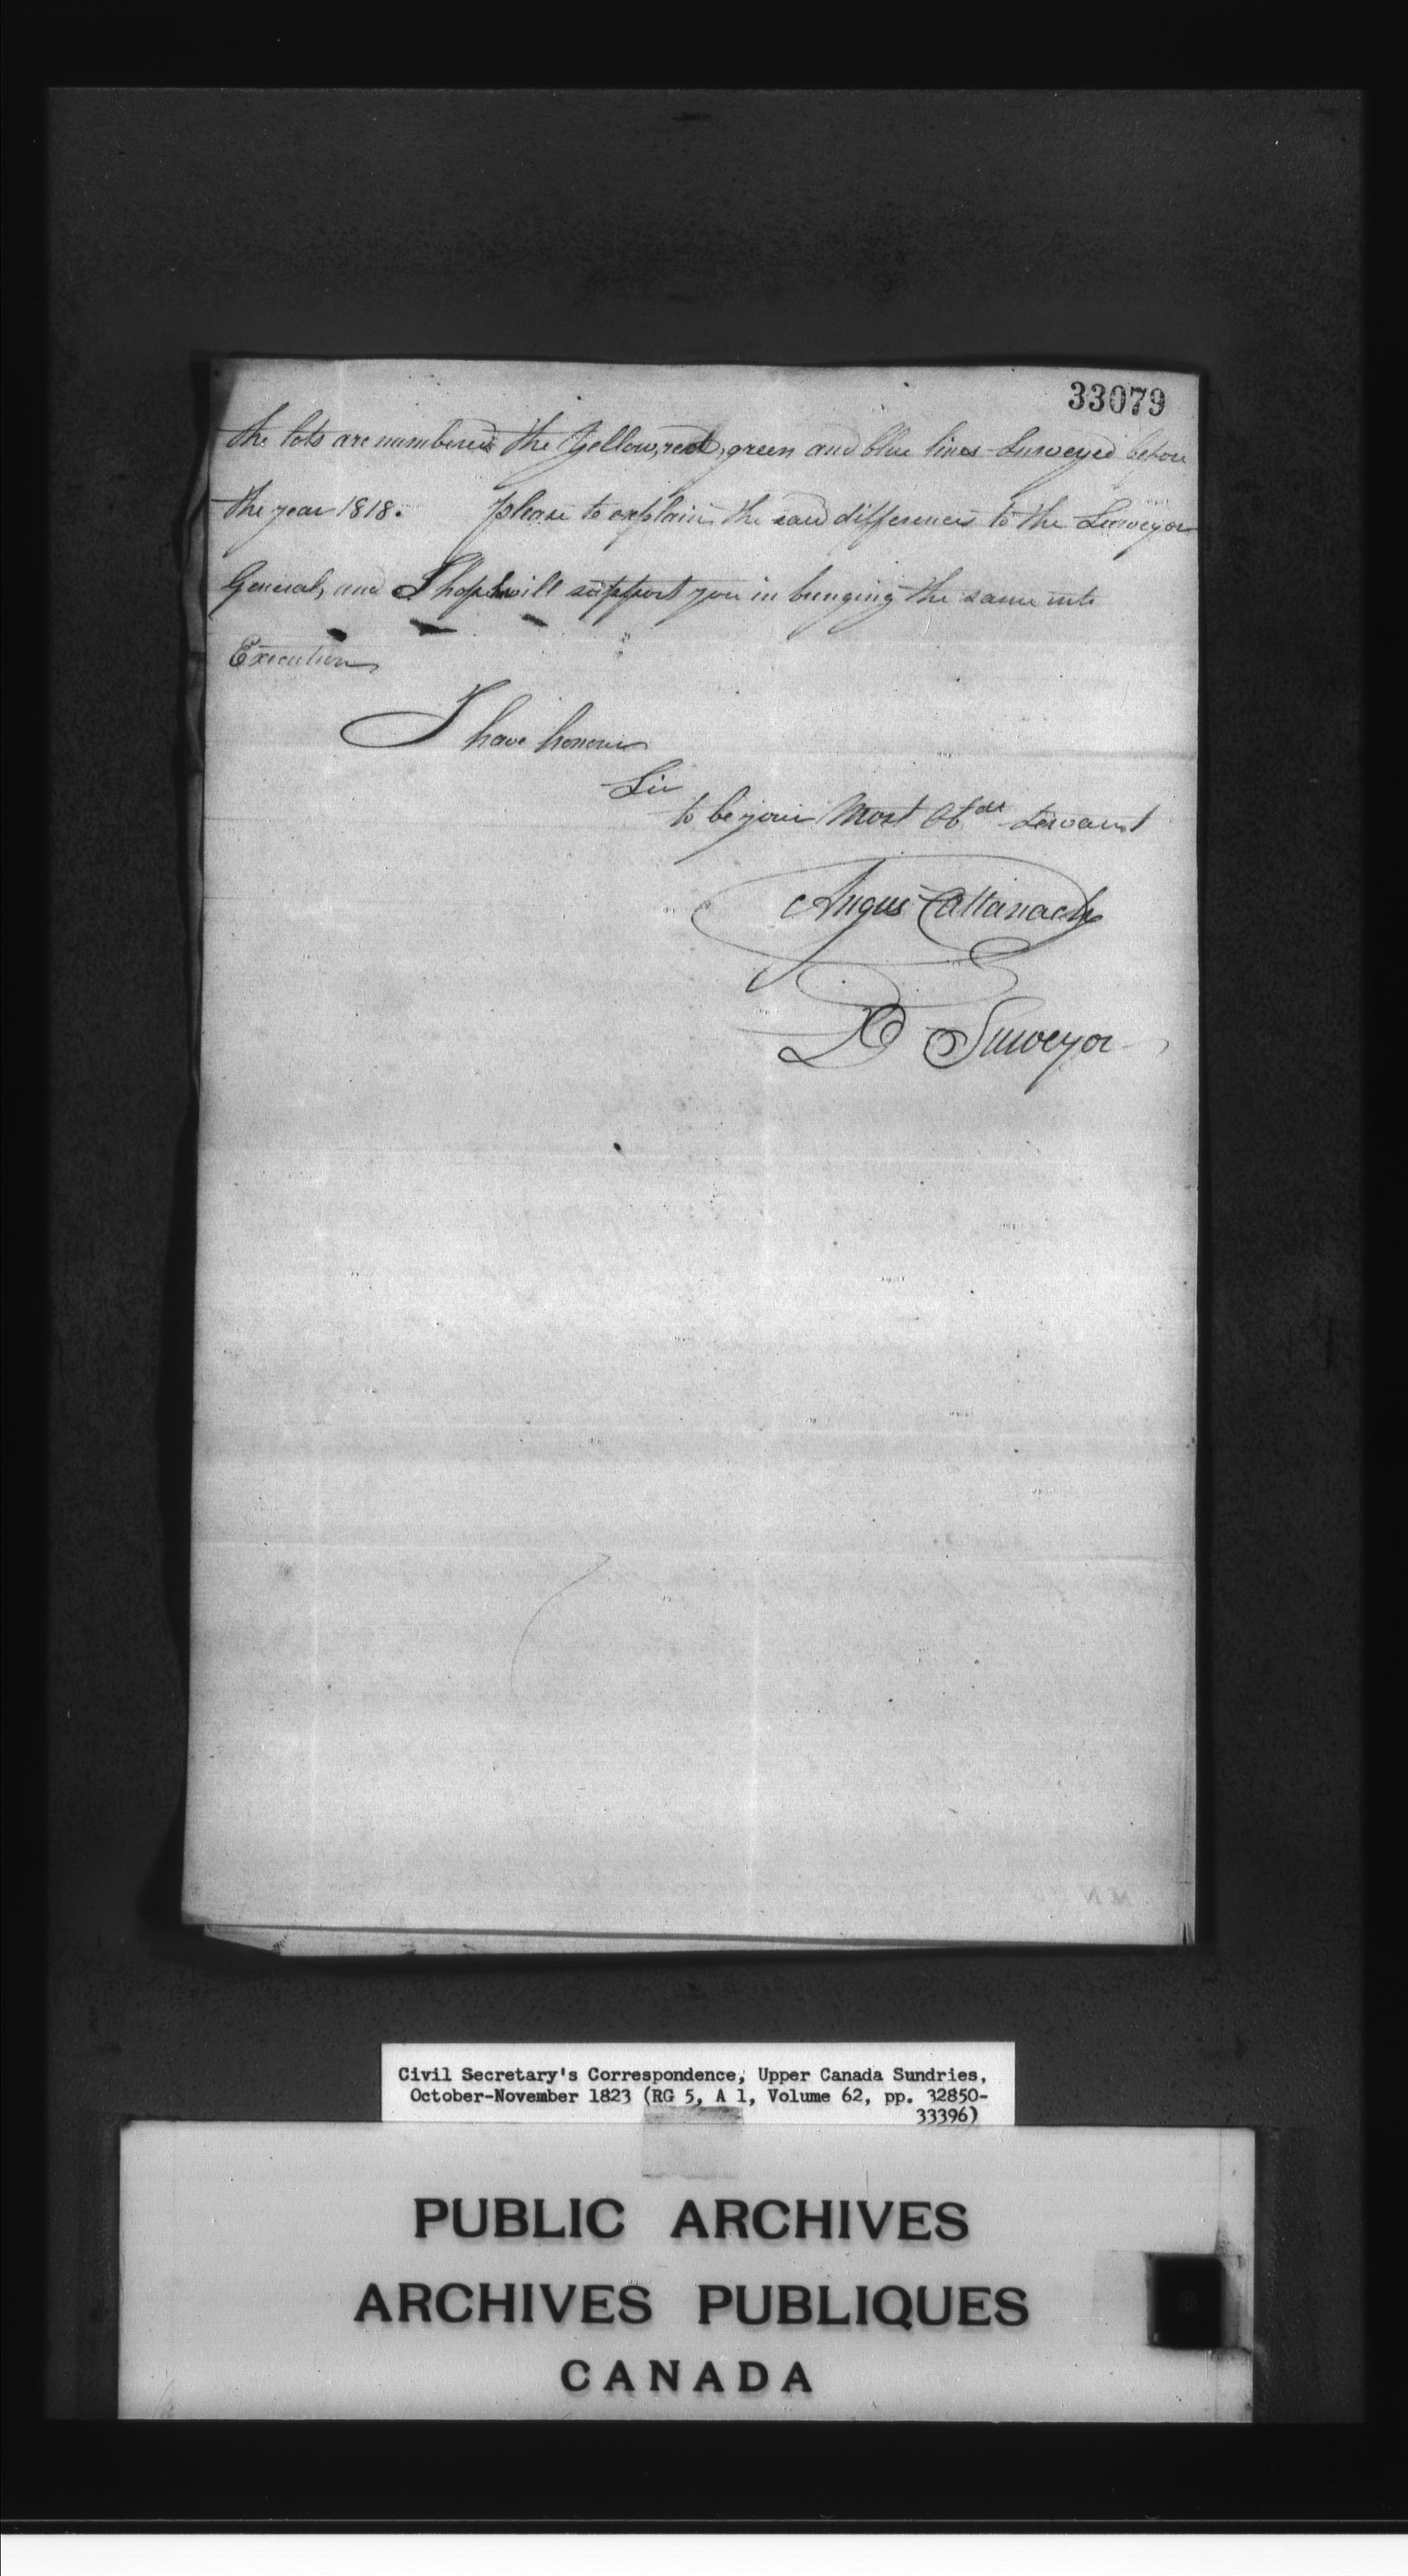 33079
the lots are numbered the Yellow, red, green and blue lines Surveyed before
the year 1818. please to explain the said differences to the Surveyor
General, and I hope will support you in bringing the same into
Execution
I have honour
Sir
to be your Most Obdt Servant
Angus Cattanach
D Surveyor
Civil Secretary's Correspondence, Upper Canada Sundries,
October-November 1823 (RG 5, A 1, Volume 62, pp. 32850-
33396)
PUBLIC ARCHIVES
ARCHIVES PUBLIQUES
CANADA